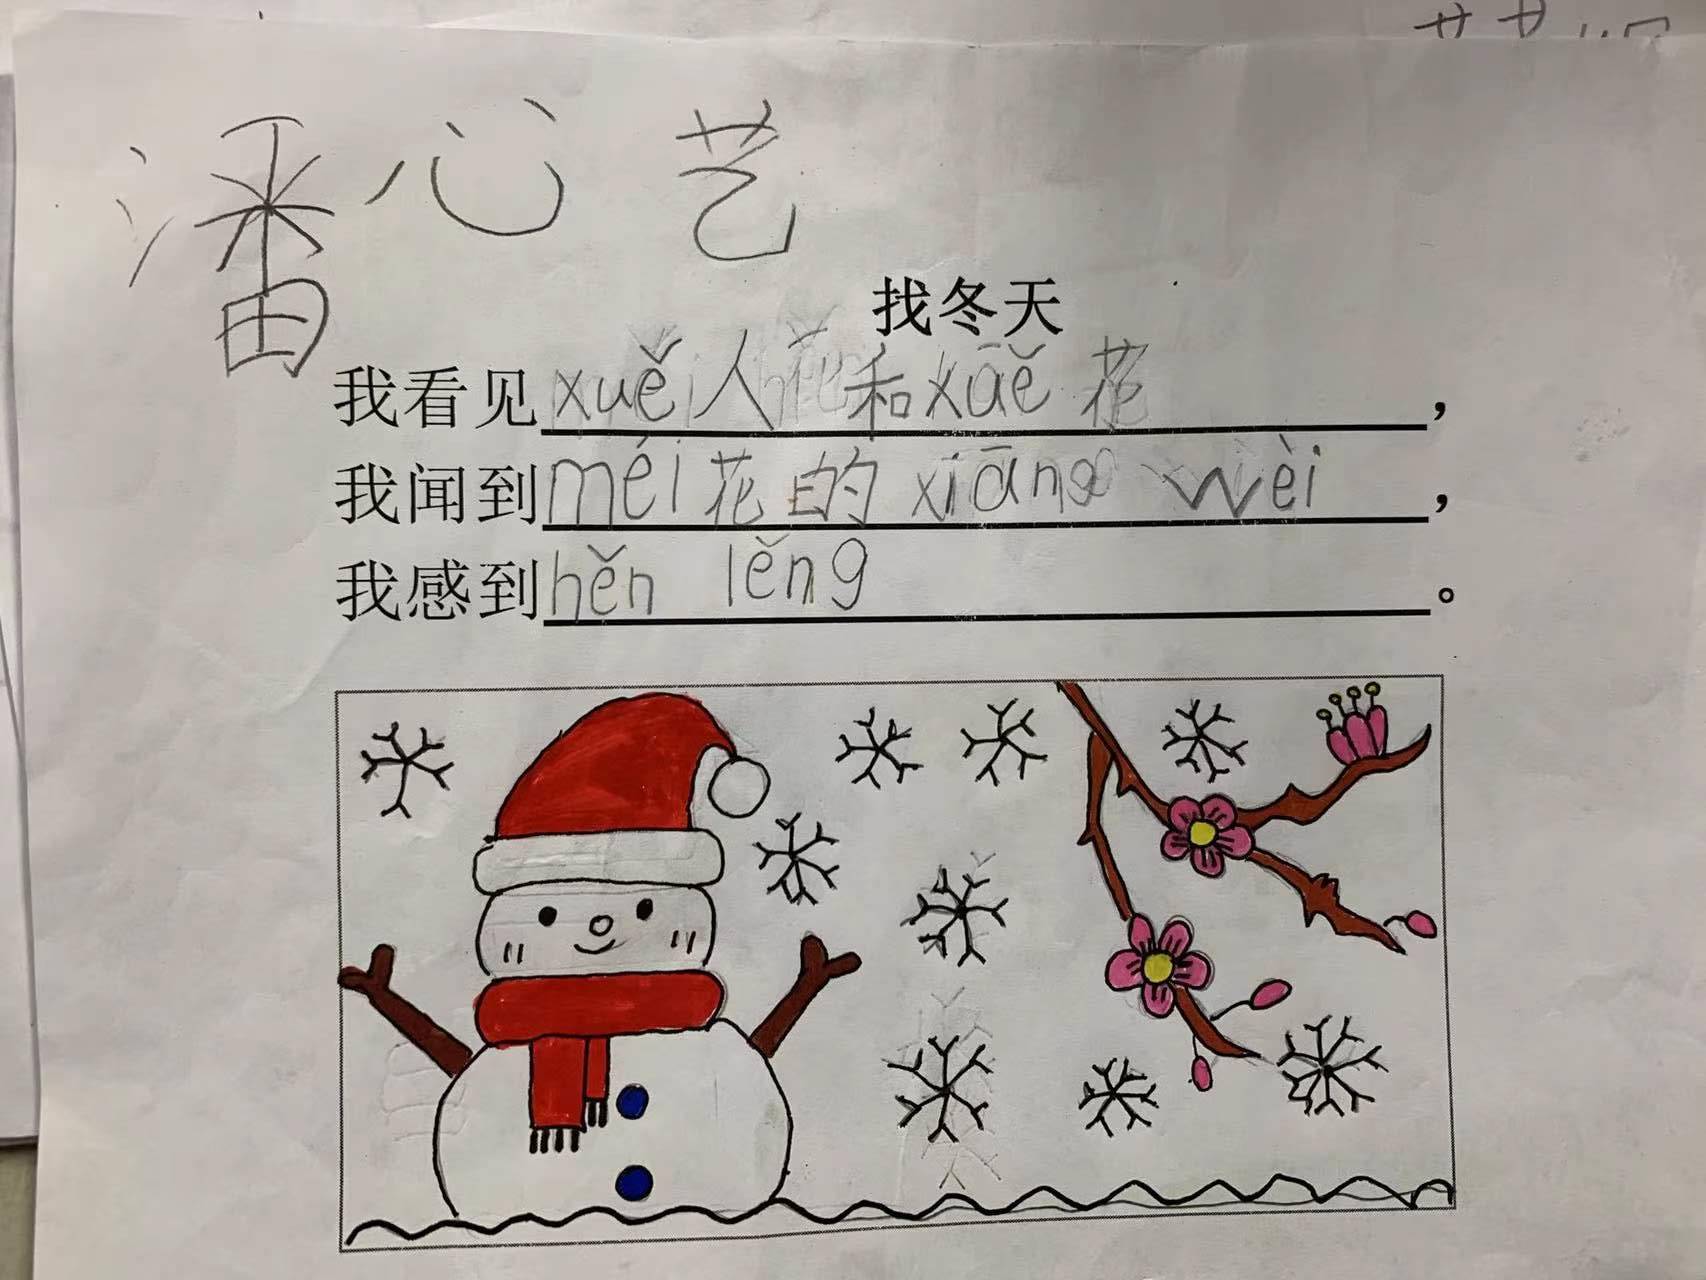 潘心艺
找冬天
我看见xuě人和xāě花，
我闻到méi花的xiāng wèi，
我感到hěn lěng。